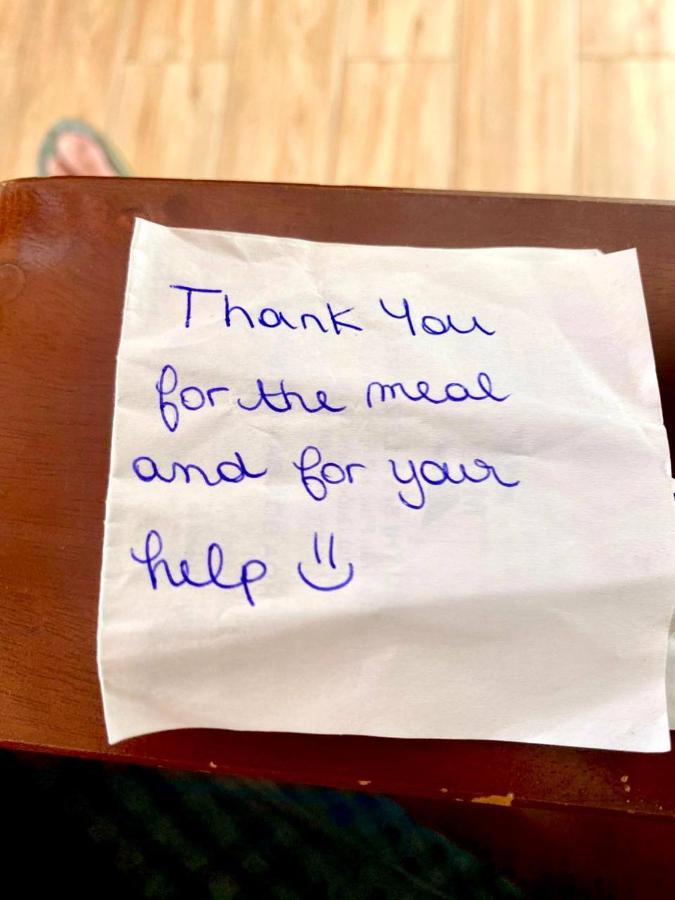 Thank You
for the meal
and for your
help